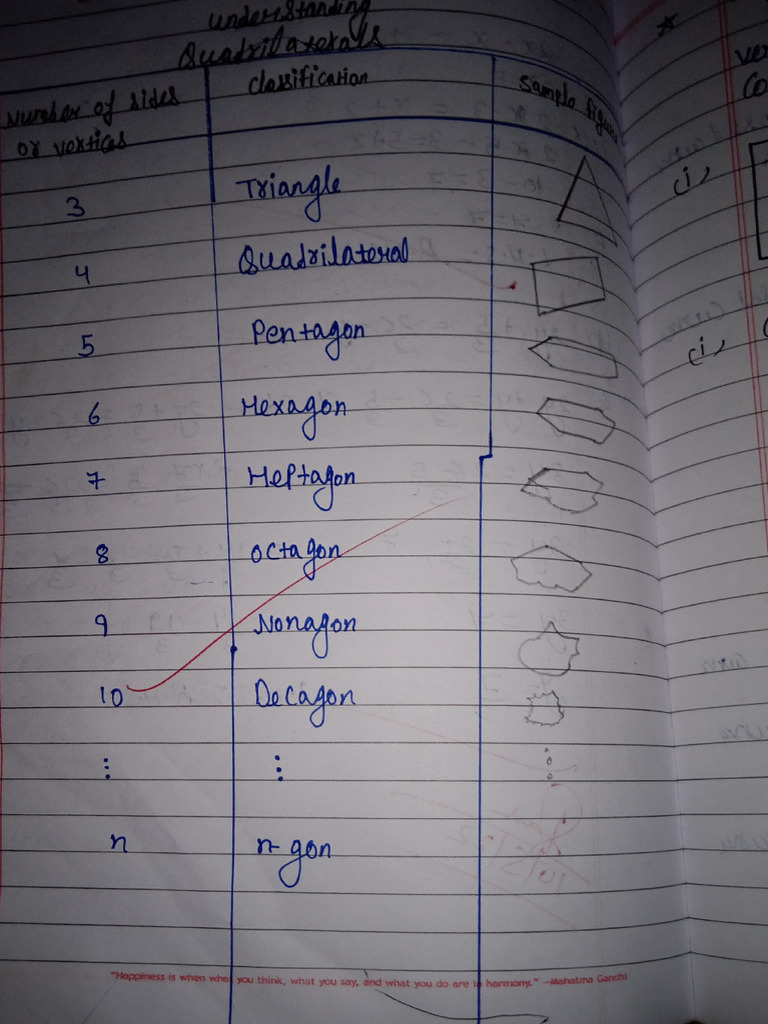 Understanding
Quadrilaterals
Number of sides or vortices | Classification | Sample figure
3 | Triangle
4 | Quadrilateral
5 | Pentagon
6 | Hexagon
7 | Heptagon
8 | Octagon
9 | Nonagon
10 | Decagon
⋮ | ⋮ | ⋮
n | n-gon
"Happiness is when what you think, what you say, and what you do are in harmony." —Mahatma Gandhi
(i)
(i)